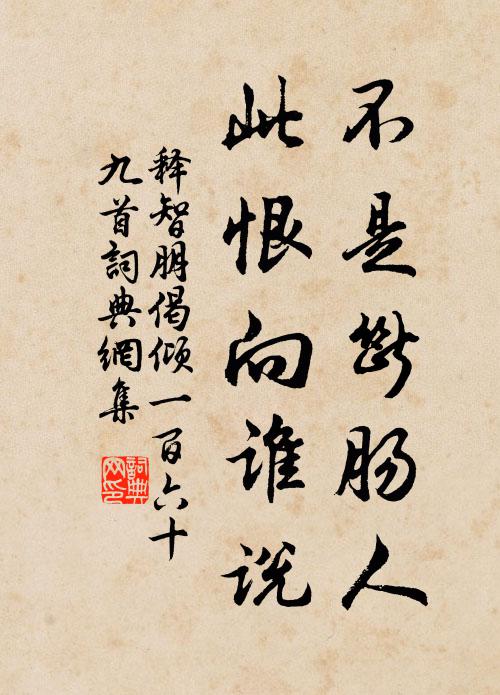 不是断肠人
此恨向谁说
释智朋偈倾一百六十
九首詞典網集
詞典
网印